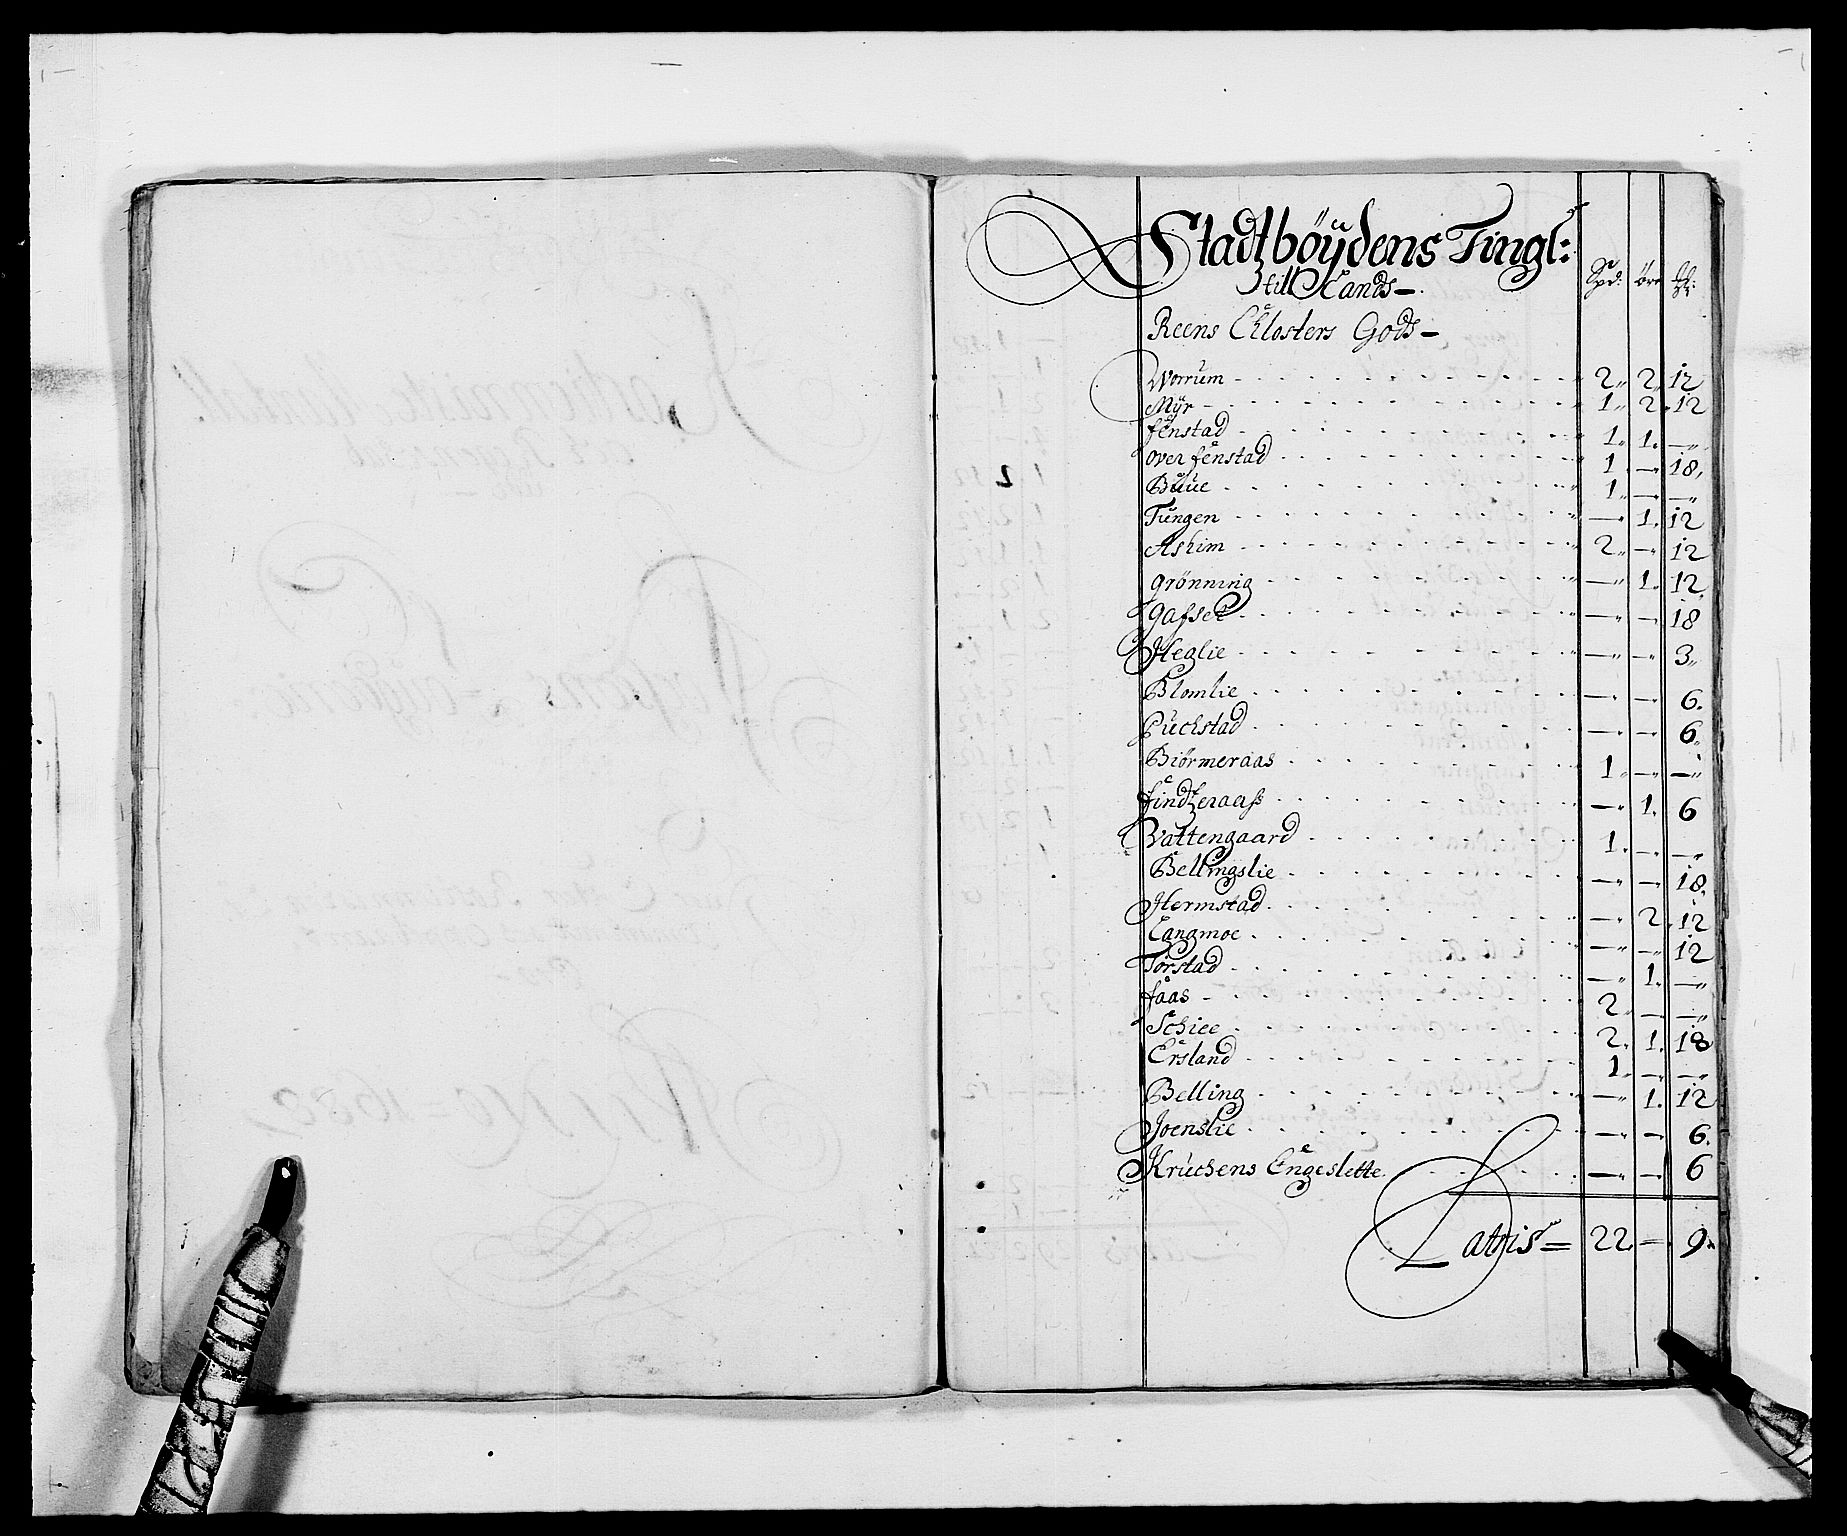 Stadtböÿdens Tingl:
till Lands
Spd: öre
Reens Closters Godß
Worrum 2 2 12
Mÿr 1 2 12
fenstad 1 1 —
over fenstad 1 — 18
Büue 1 — —
Tüngen — 1 12
Ashim 2 — 12
grönning — 1 12
gafset — — 18
Heglie — — 3
Blomlie — — 6
Puchstad — — 6
Biörmeraas 1 — —
findzeraass — 1 6
Vattengaard 1 — —
Bellingslie — — 18
Hermstad — 2 12
Langmoe — — 12
Torstad — 1 —
faas 2 — —
Schiee 2 1 18
Ersland 1 — —
Belling — 1 12
Joenslie — — 6
Kruchens Engeslette — — 6
Latris 22 — 9